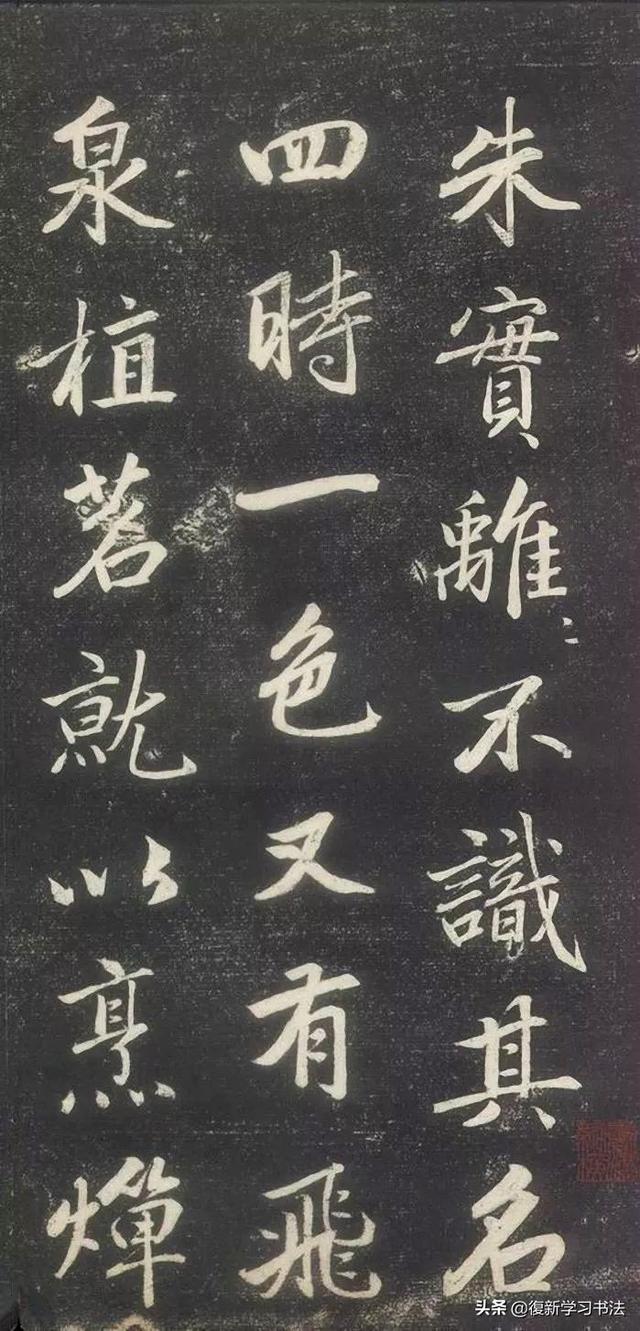 朱實離〻不識其名
四時一色又有飛
泉植茗就以烹燀
头条 @復新学习书法